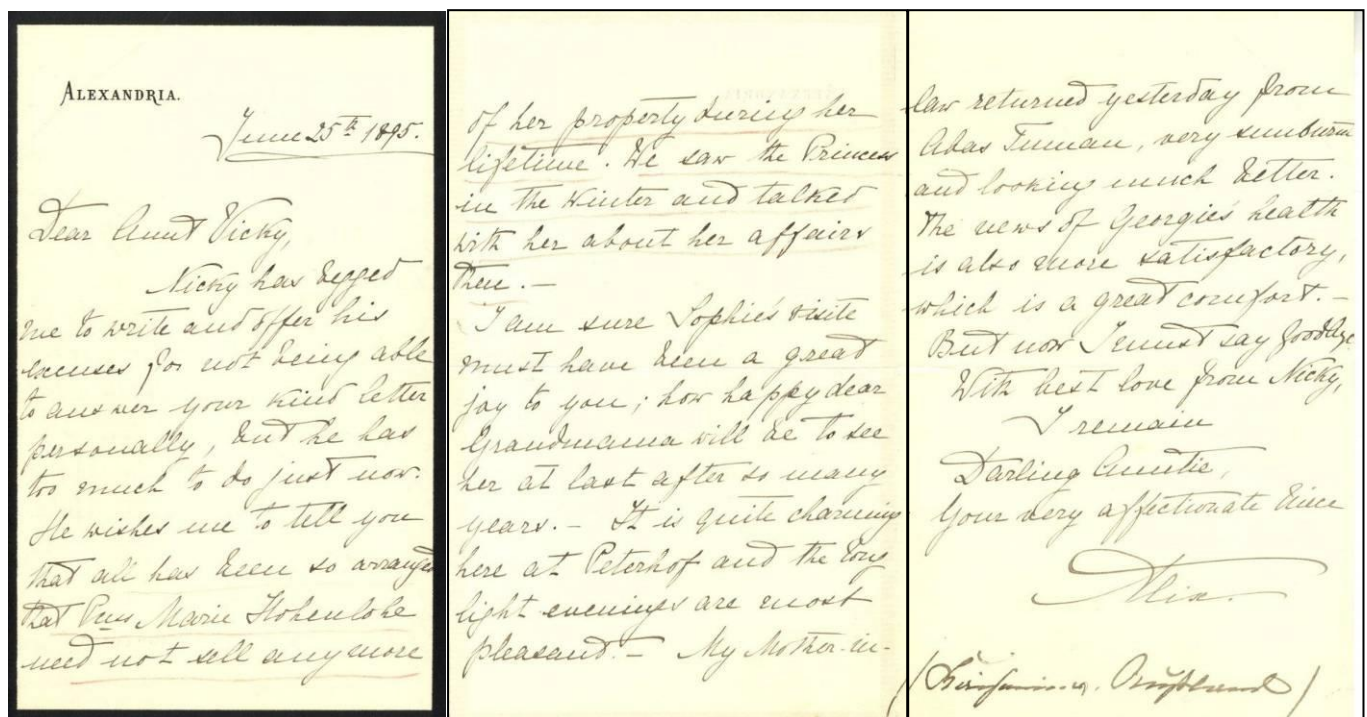 ALEXANDRIA.
June 25th 1895.
Dear Aunt Vicky,
Nicky has begged
me to write and offer his
excuses for not being able
to answer your kind letter
personally, but he has
too much to do just now.
He wishes me to tell you
that all has been so arranged
that Pcess Marie Hohenlohe
need not sell any more
of her property during her
lifetime. We saw the Princess
in the Winter and talked
with her about her affairs
then. —
I am sure Sophie's visite
must have been a great
joy to you; how happy dear
Grandmama will be to see
her at last after so many
years. — It is quite charming
here at Peterhof and the long
light evenings are most
pleasand. — My Mother-in-
law returned yesterday from
Abas Tuman, very sunburnt
and looking much better.
The news of Georgie's health
is also more satisfactory,
which is a great comfort. —
But now I must say goodbye.
With best love from Nicky,
I remain
Darling Auntie,
Your very affectionate Niece
Alix.
(Kaiserin v. Rußland)